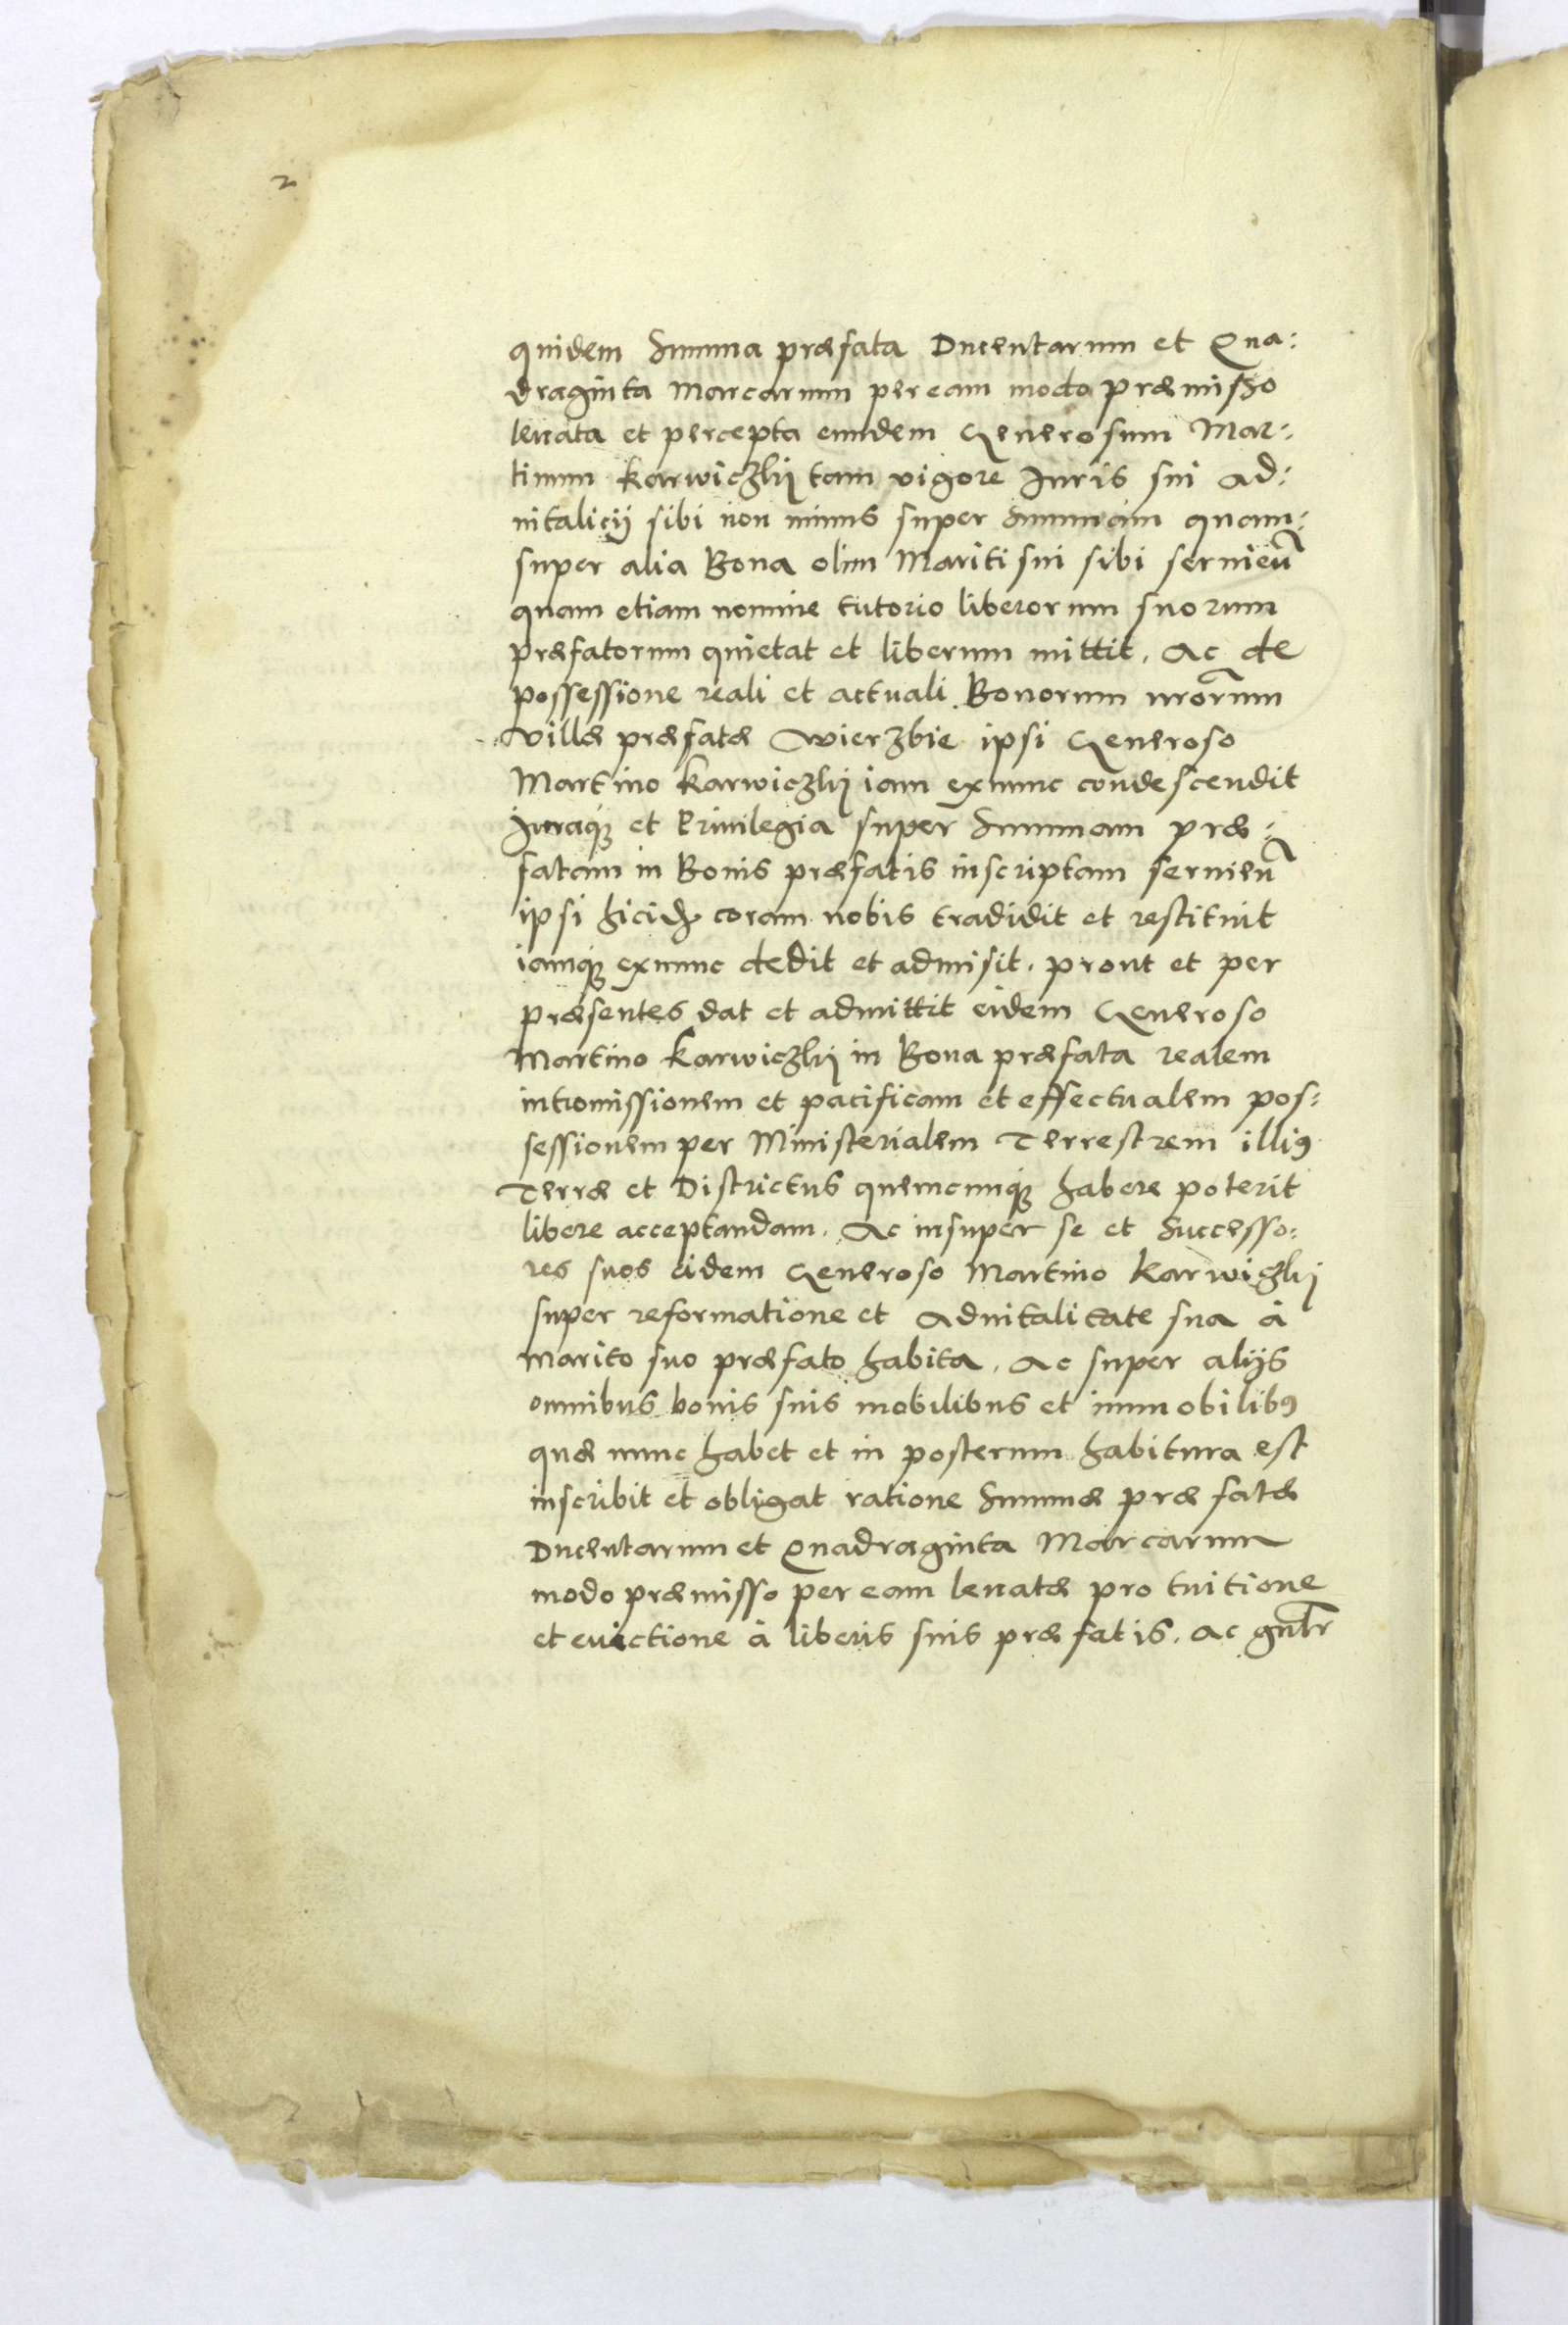 2
quidem Summa præfata Ducentarum et Qua:
draginta Marcarum per eam modo præmisso
leuata et percepta eundem Generosum Mar:
tinum Karwiczkij tam vigore Juris sui ad:
uitalicij sibi non minus super Summam quam:
super alia Bona olim Mariti sui sibi seruieñ
quam etiam nomine tutorio liberorum suorum
præfatorum quietat et liberum mittit. Ac de
possessione reali et actuali Bonorum nrorum
villæ præfatæ Wierzbie ipsi Generoso
Martino Karwiczkij iam exnunc condescendit
Juraq; et Priuilegia super Summam præ:
fatam in Bonis præfatis inscriptam seruieñ
ipsi coram nobis tradidit et restituit
iamq; exnunc dedit et admisit. prout et per
præsentes dat et admittit eidem Generoso
Martino Karwiczkij in Bona præfata realem
intromissionem et pacificam et effectualem pos:
sessionem per Ministerialem Terrestrem illi9
Terræ et Districtus quemcunq; habere poterit
libere acceptandam. Ac insuper se et Successo:
res suos eidem Generoso Martino Karwiczkij
super reformatione et aduitalitate sua à
Marito suo præfato habita. Ac super alijs
omnibus bonis suis mobilibus et immobilib9
quæ nunc habet et in posterum habitura est
inscribit et obligat ratione Summæ præfatæ
Ducentarum et Quadraginta Marcarum
modo præmisso per eam leuatæ pro tuitione
et euictione à liberis suis præfatis. Ac gnlr